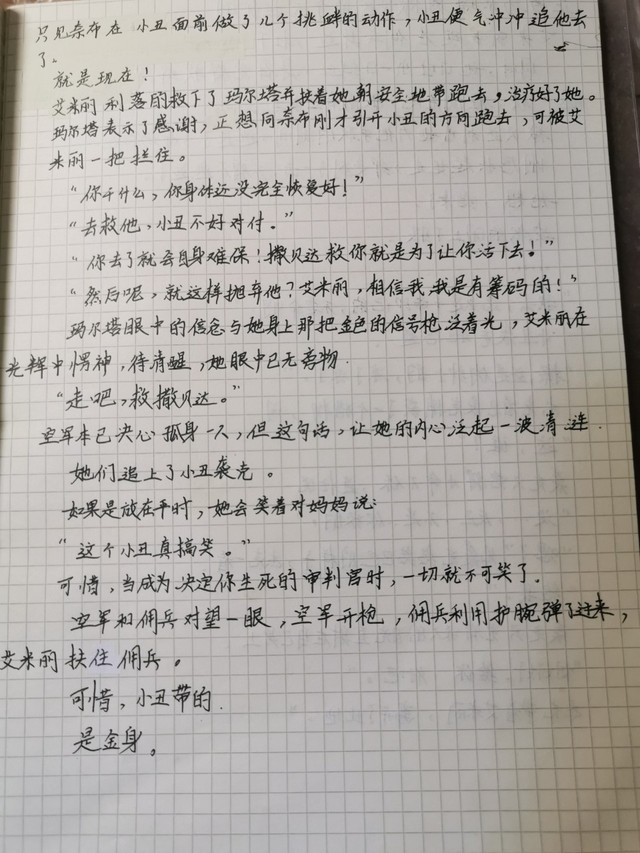 只见奈布在小丑面前做了几个挑衅的动作，小丑便气冲冲追他去
了。
就是现在！
艾米丽利落的救下了玛尔塔并扶着她朝安全地带跑去，治疗好了她。
玛尔塔表示了感谢，正想向奈布刚才引开小丑的方向跑去，可被艾
米丽一把拦住。
“你干什么，你身体还没完全恢复好！”
“去救他，小丑不好对付。”
“你去了就会自身难保！撒贝达救你就是为了让你活下去！”
“然后呢，就这样抛弃他？艾米丽，相信我，我是有筹码的！”
玛尔塔眼中的信念与她身上那把金色的信号枪泛着光，艾米丽在
光辉中愣神，待清醒，她眼中已无旁物.
“走吧，救撒贝达。”
空军本已决心孤身一人，但这句话，让她的内心泛起一波清涟.
她们追上了小丑裘克。
如果是放在平时，她会笑着对妈妈说：
“这个小丑真搞笑。”
可惜，当成为决定你生死的审判官时，一切就不可笑了.
空军和佣兵对望一眼，空军开枪，佣兵利用护腕弹了过来，
艾米丽扶住佣兵。
可惜，小丑带的.
是金身。